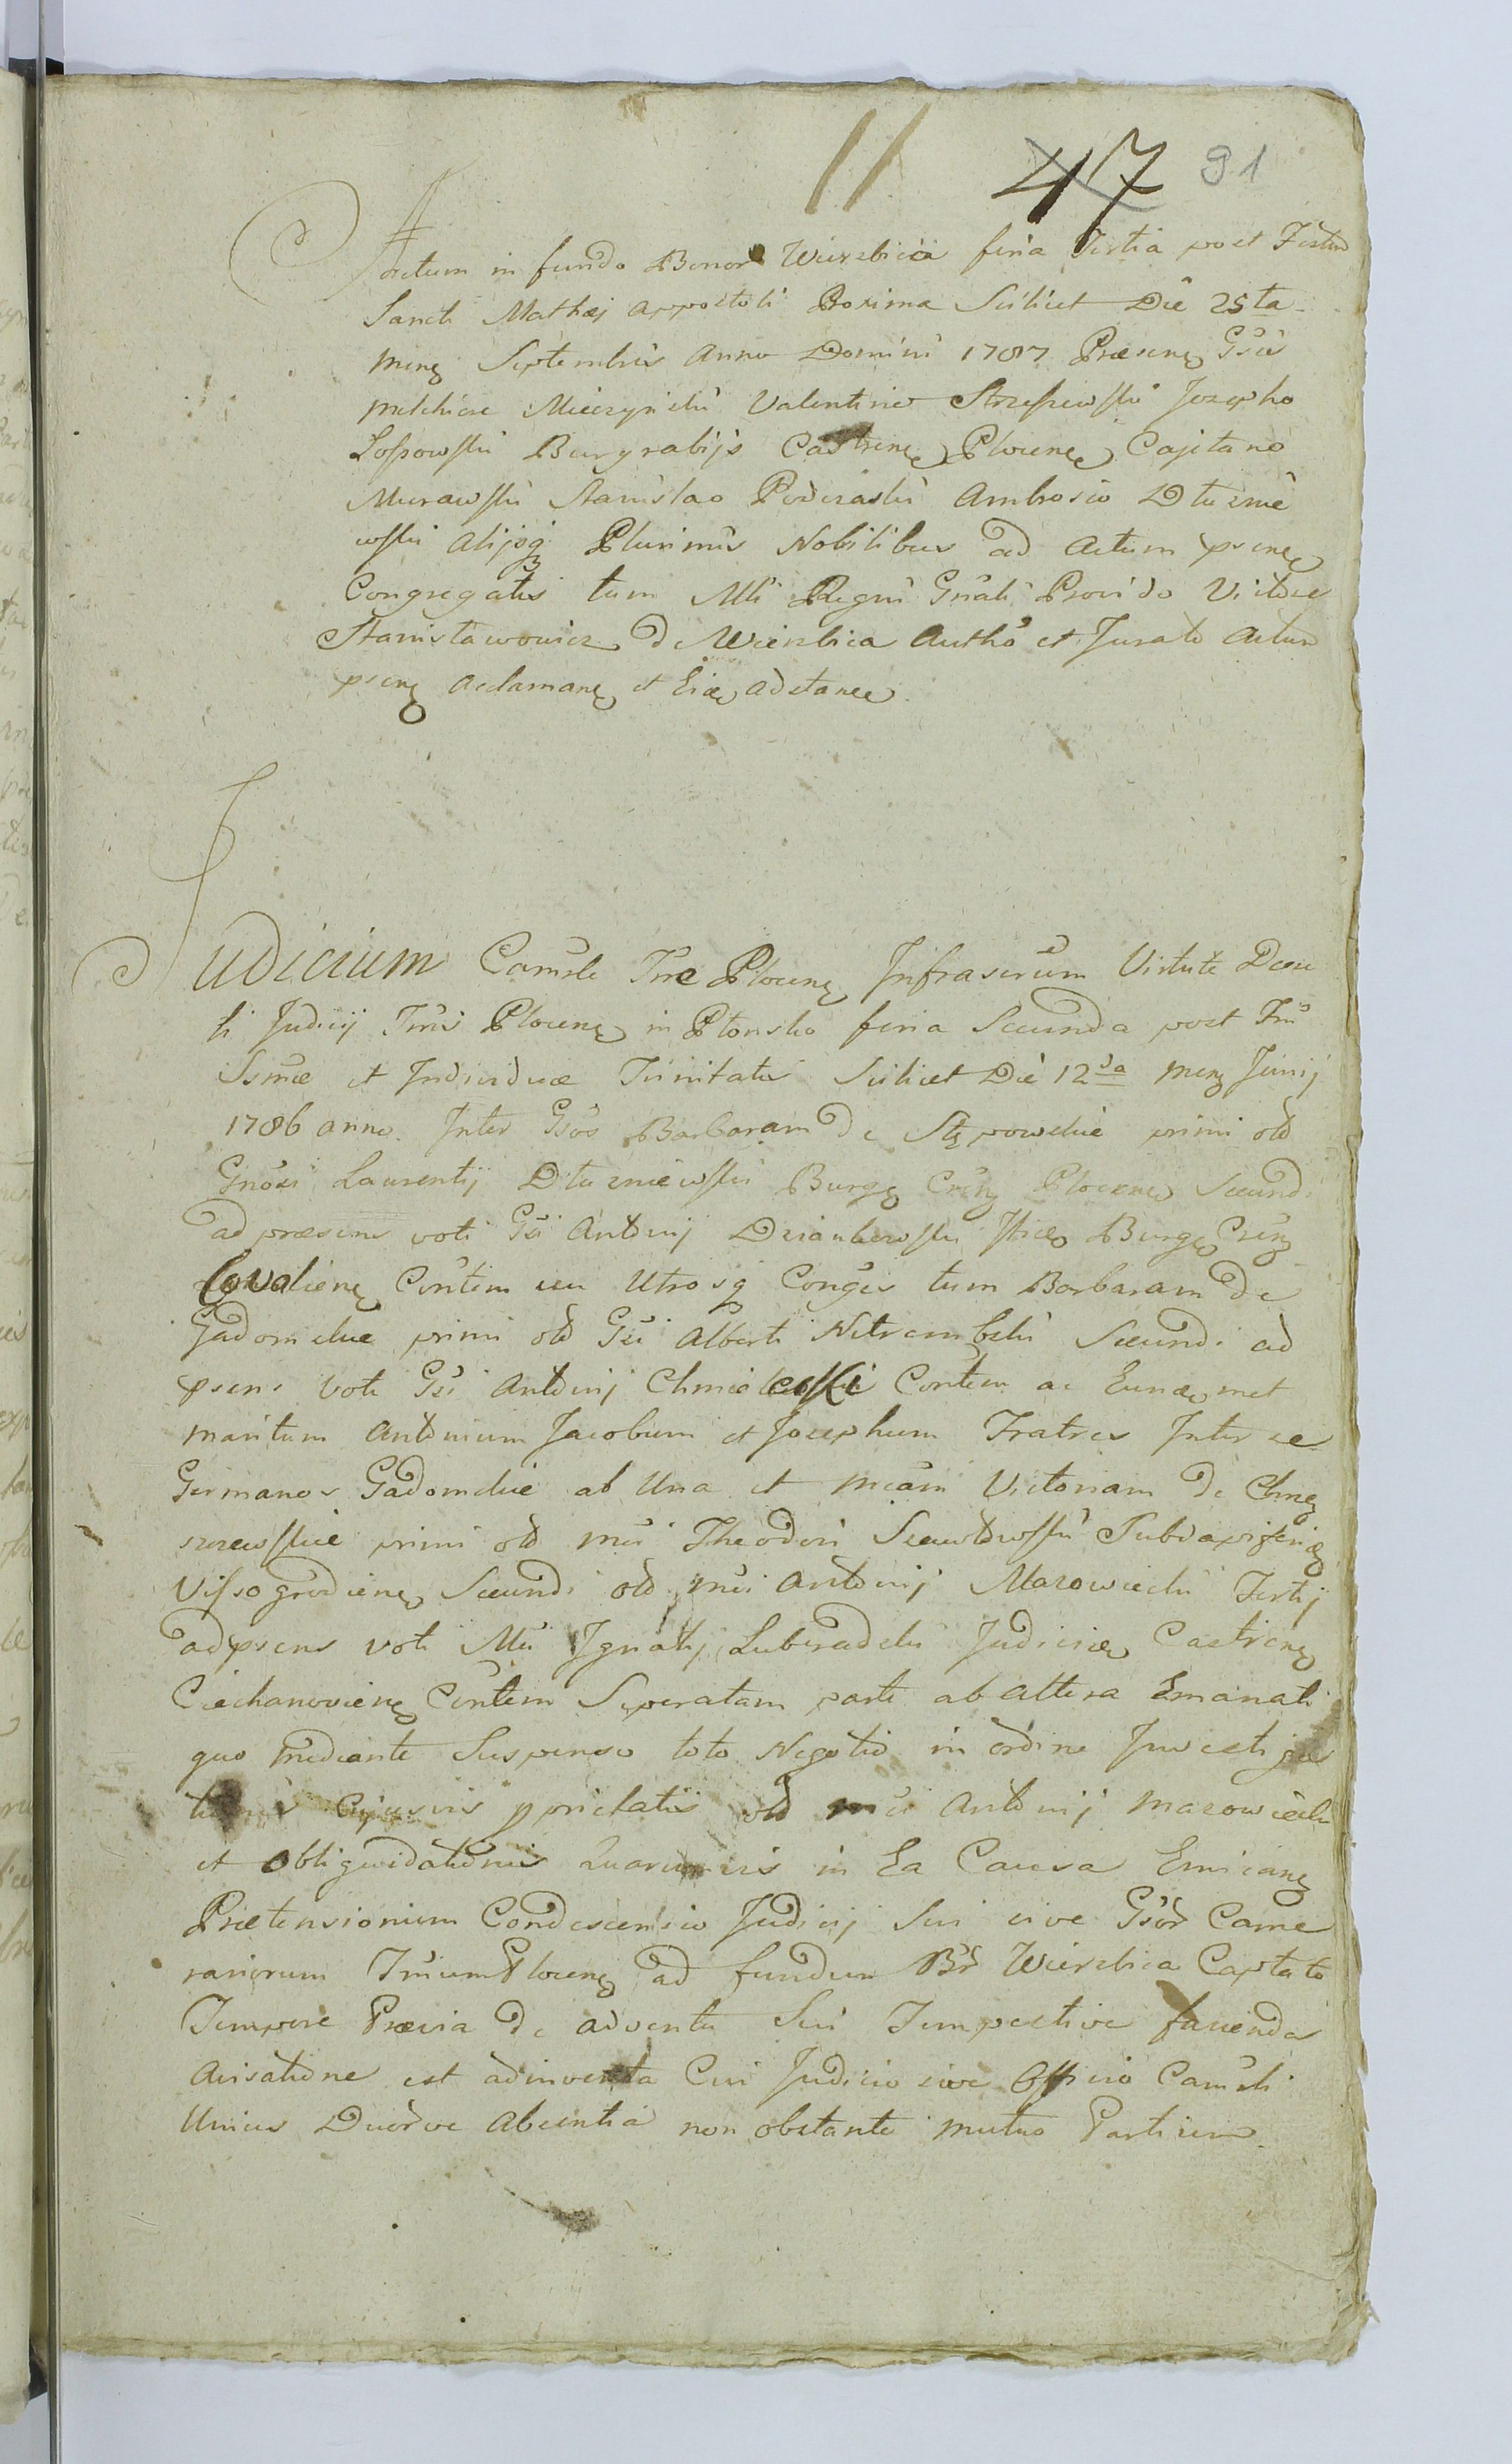 11 47 91
Actum in fundo Bonor Wierzbica feria Tertia post Festum
Sancti Mathæj Appostoli Proxima Scilicet Die 25ta
Mens Septembris Anno Domini 1787 Præsen Gsis
Melchiore Mieczyński Valentino Strzeszewski Josepho
Lossowski Burgrabijs Castren Plocen Cajetano
Murawski Stanislao Podczaski Ambrosio Dłuznie
wski Alijsq Plurimis Nobilibus ad Actum psen
Congregatis tum Mli Regni Gnali Provido Victore
Stanisławowicz de Wierzbica Autho et Jurato Actum
psen Aclaman et Eid adstan
Judicium Camrle Træ Plocen Infrascrum Virtute Decre
ti Judicij Tris Plocen in Płonsko feria Secunda post Fm
Ssmæ et Individuæ Trinitatis Scilicet Die 12da Mens Junij
1786 anno. Inter Gsos Barbaram de Stępowskie primi old
Gnosi Laurentij Dłuzniewski Burg Cren Plocen Secundi
ad præsens voti Gsi Antonij Dziankowski Burg Cren
Covalien Contem ceu Utrosq Conges tum Barbaram de
Gadomskie primi old Gsi Alberti Nitrembski Secundi ad
psens voti Gsi Antonij Chmielewski Contem ac Eund met
Maritum Antonium Jacobum et Josephum Fratres Inter se
Germanos Gadomskie ab Una et Mcam Victoriam de
primi old Mci Theodori Subdapiferi
Vissogrodien Secundi old Mci Antonij Mazowiecki Tertij
ad psens voti Mci Ignatij Luberadzki Judici Castren
Ciechanovien Contem Seperatam parte ab altera Emanati
quo Mediante Suspenso toto Negotio in ordine Investiga
tionis Cujusvis pprietatis old Mci Antonij Mazowiecki
et Obliquidationis Quarumvis in Ea Causa Emican
Prætensionum Condescensio Judicij Sui sive Gsor Came
rariorum Trium Plocen ad fundum Br Wierzbica Captato
Tempore Prævia de adventu Sui Tempestive facienda
Avisatione est adinventa Cui Judicio sive Officio Camrli
Unius Duorve Absentia non obstante mutuo Partium